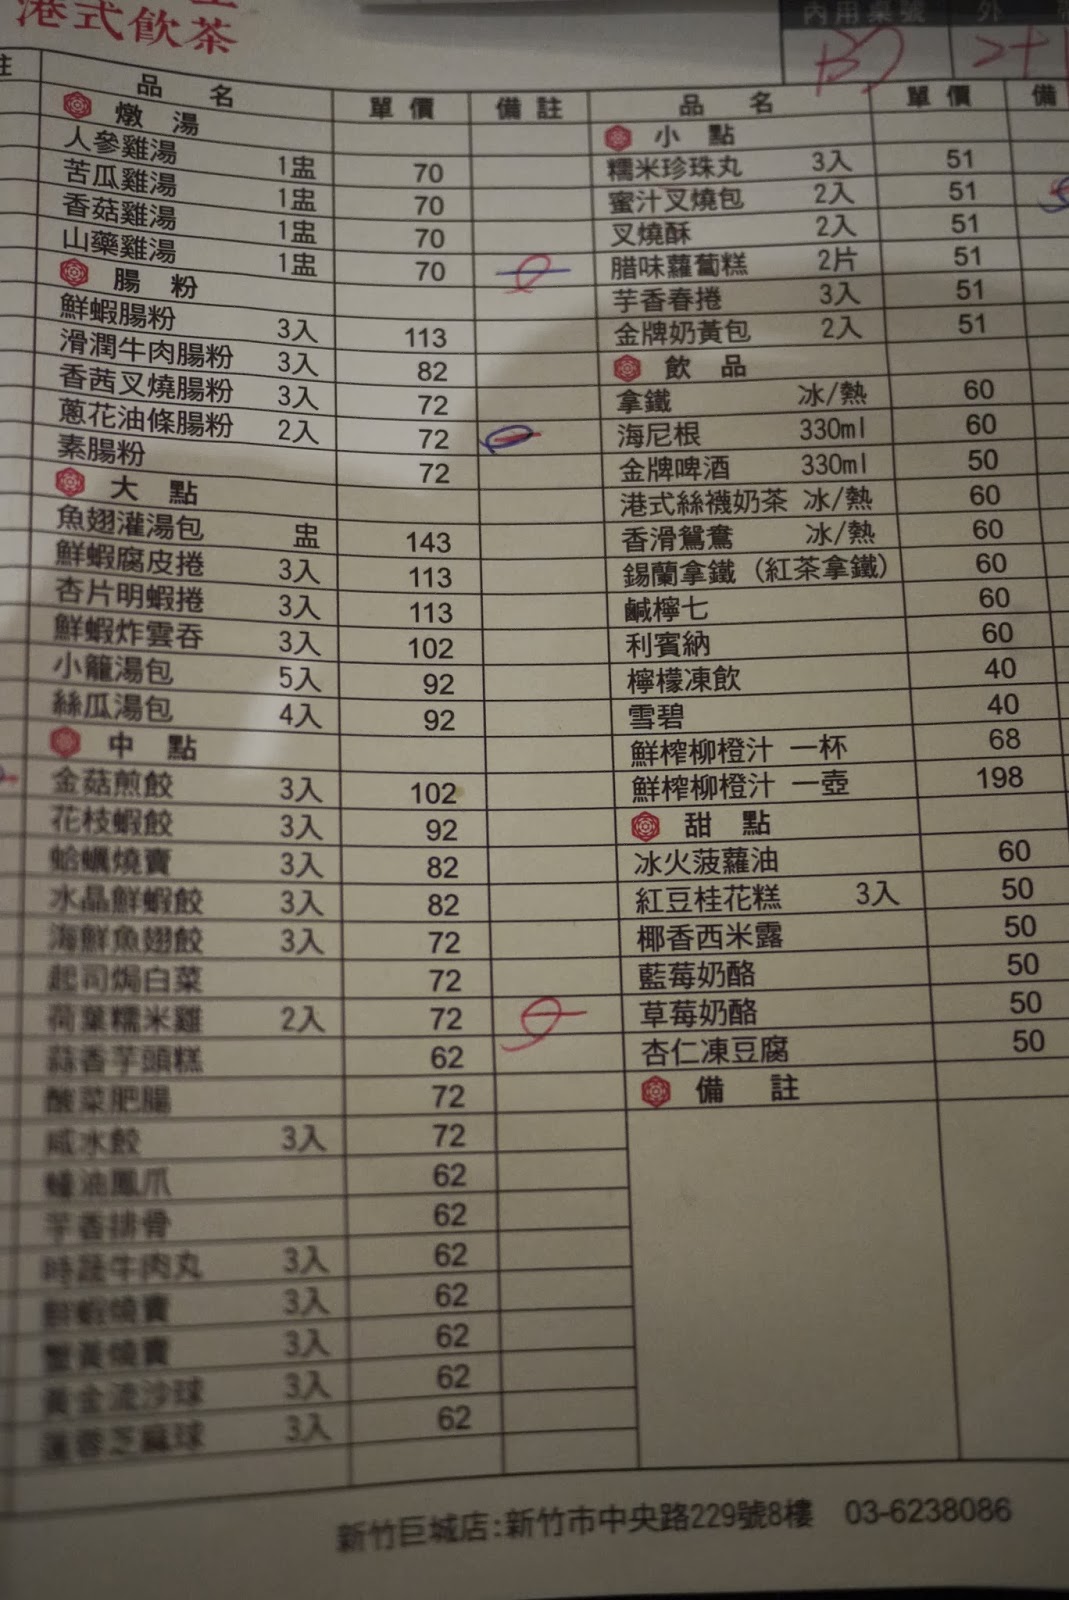 港式飲茶
內用桌號 外
B7 2+1
註 品名 單價 備註 品名 單價 備
燉湯
人參雞湯 1盅 70
苦瓜雞湯 1盅 70
香菇雞湯 1盅 70
山藥雞湯 1盅 70
腸粉
鮮蝦腸粉 3入 113
滑潤牛肉腸粉 3入 82
香茜叉燒腸粉 3入 72
蔥花油條腸粉 2入 72
素腸粉 72
大點
魚翅灌湯包 盅 143
鮮蝦腐皮捲 3入 113
杏片明蝦捲 3入 113
鮮蝦炸雲吞 3入 102
小籠湯包 5入 92
絲瓜湯包 4入 92
中點
金菇煎餃 3入 102
花枝蝦餃 3入 92
蛤蠣燒賣 3入 82
水晶鮮蝦餃 3入 82
海鮮魚翅餃 3入 72
起司焗白菜 72
荷葉糯米雞 2入 72
蒜香芋頭糕 62
酸菜肥腸 72
咸水餃 3入 72
蠔油鳳爪 62
芋香排骨 62
時蔬牛肉丸 3入 62
鮮蝦燒賣 3入 62
蟹黃燒賣 3入 62
黃金流沙球 3入 62
蓮蓉芝麻球 3入 62
小點
糯米珍珠丸 3入 51
蜜汁叉燒包 2入 51
叉燒酥 2入 51
腊味蘿蔔糕 2片 51
芋香春捲 3入 51
金牌奶黃包 2入 51
飲品
拿鐵 冰/熱 60
海尼根 330ml 60
金牌啤酒 330ml 50
港式絲襪奶茶 冰/熱 60
香滑鴛鴦 冰/熱 60
錫蘭拿鐵 (紅茶拿鐵) 60
鹹檸七 60
利賓納 60
檸檬凍飲 40
雪碧 40
鮮榨柳橙汁 一杯 68
鮮榨柳橙汁 一壺 198
甜點
冰火菠蘿油 60
紅豆桂花糕 3入 50
椰香西米露 50
藍莓奶酪 50
草莓奶酪 50
杏仁凍豆腐 50
備註
新竹巨城店:新竹市中央路229號8樓 03-6238086